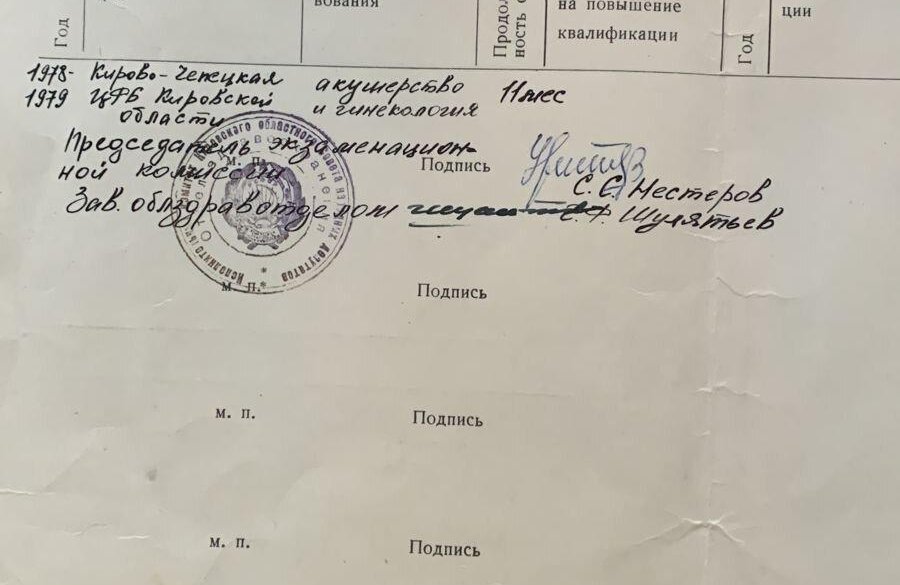 Год
вования
Продол
ность о
на повышение
квалификации
Год
ции
1978- Кирово-Чепецкая акушерство 11 мес
1979 ЦРБ Кировской и гинекология
области
Председатель экзаменацион-
м. п. Подпись
ной комиссии С. С. Нестеров
Зав. облздравотделом С. Ф. Шулятьев
Исполнительный комитет Кировского областного Совета народных депутатов
м. п. Подпись
м. п. Подпись
м. п. Подпись